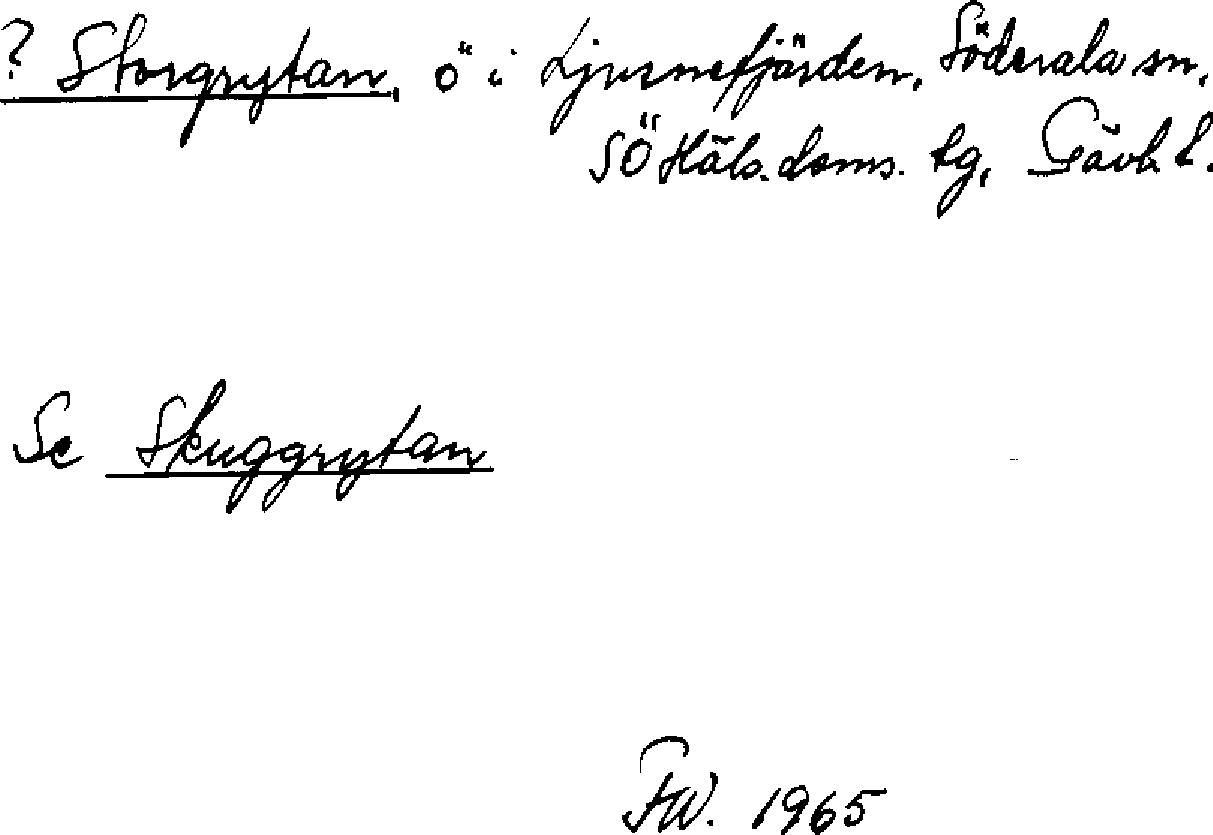 ? Storgrytan, ö i Ljusnefjärden, Söderala sn,
SÖ Häls. doms. tg, Gävb. l.
Se Skuggrytan
FW. 1965